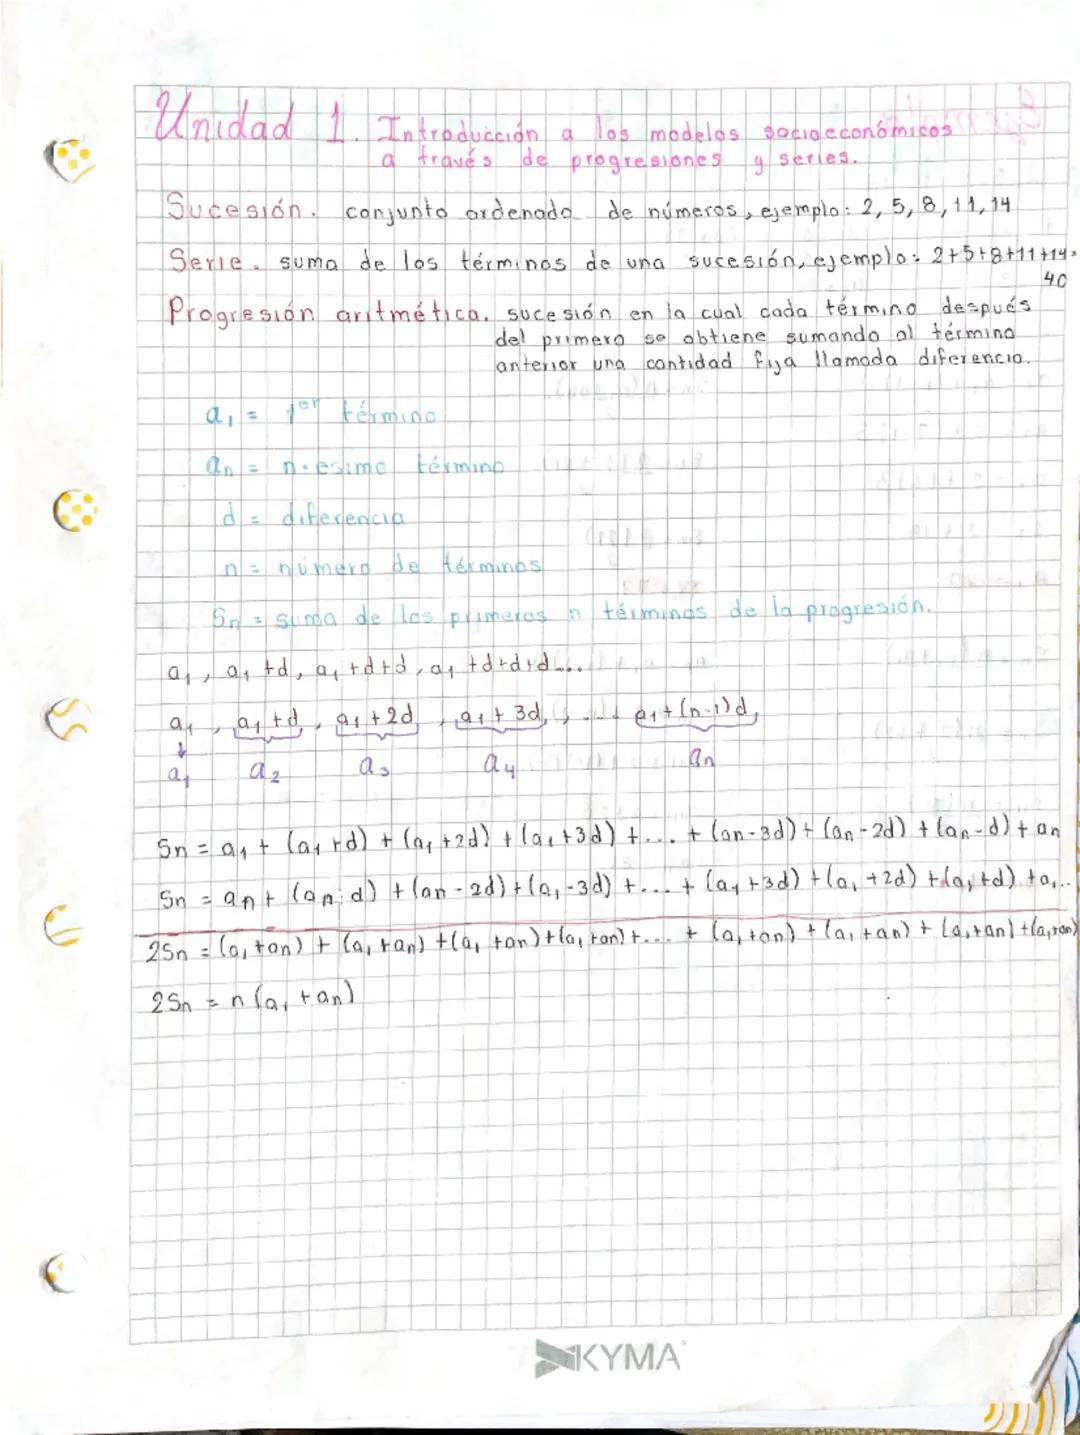 Unidad 1. Introducción a los modelos socioeconómicos
a través de progresiones y series.
Sucesión. conjunto ordenado de números, ejemplo: 2, 5, 8, 11, 14
Serie. suma de los términos de una sucesión, ejemplo: 2+5+8+11+14=
40
Progresión aritmética. sucesión en la cual cada término después
del primero se obtiene sumando al término
anterior una cantidad fija llamada diferencia.
a₁ = 1er término
an = n-esimo término
d = diferencia
n = número de términos
Sn = suma de los primeros n términos de la progresión.
a₁, a₁ +d, a₁ +d+d, a₁ +d+d+d...
a₁, a₁ +d, a₁ +2d, a₁ + 3d, ... a₁+(n-1)d,
a₁ a₂ a₃ a₄ an
Sn = a₁ + (a₁ +d) + (a₁ +2d) + (a₁ +3d) +... + (an-3d) + (an - 2d) + (an - d) + an
Sn = an + (an-d) + (an - 2d) + (a₁ -3d) +... + (a₁ +3d) + (a₁ +2d) + (a₁ +d) +a₁..
2Sn = (a₁ +an) + (a₁ +an) + (a₁ +an) + (a₁ +an) +... + (a₁ +an) + (a₁ +an) + (a₁ +an) + (a₁ +an)
2Sn = n (a₁ + an)
KYMA